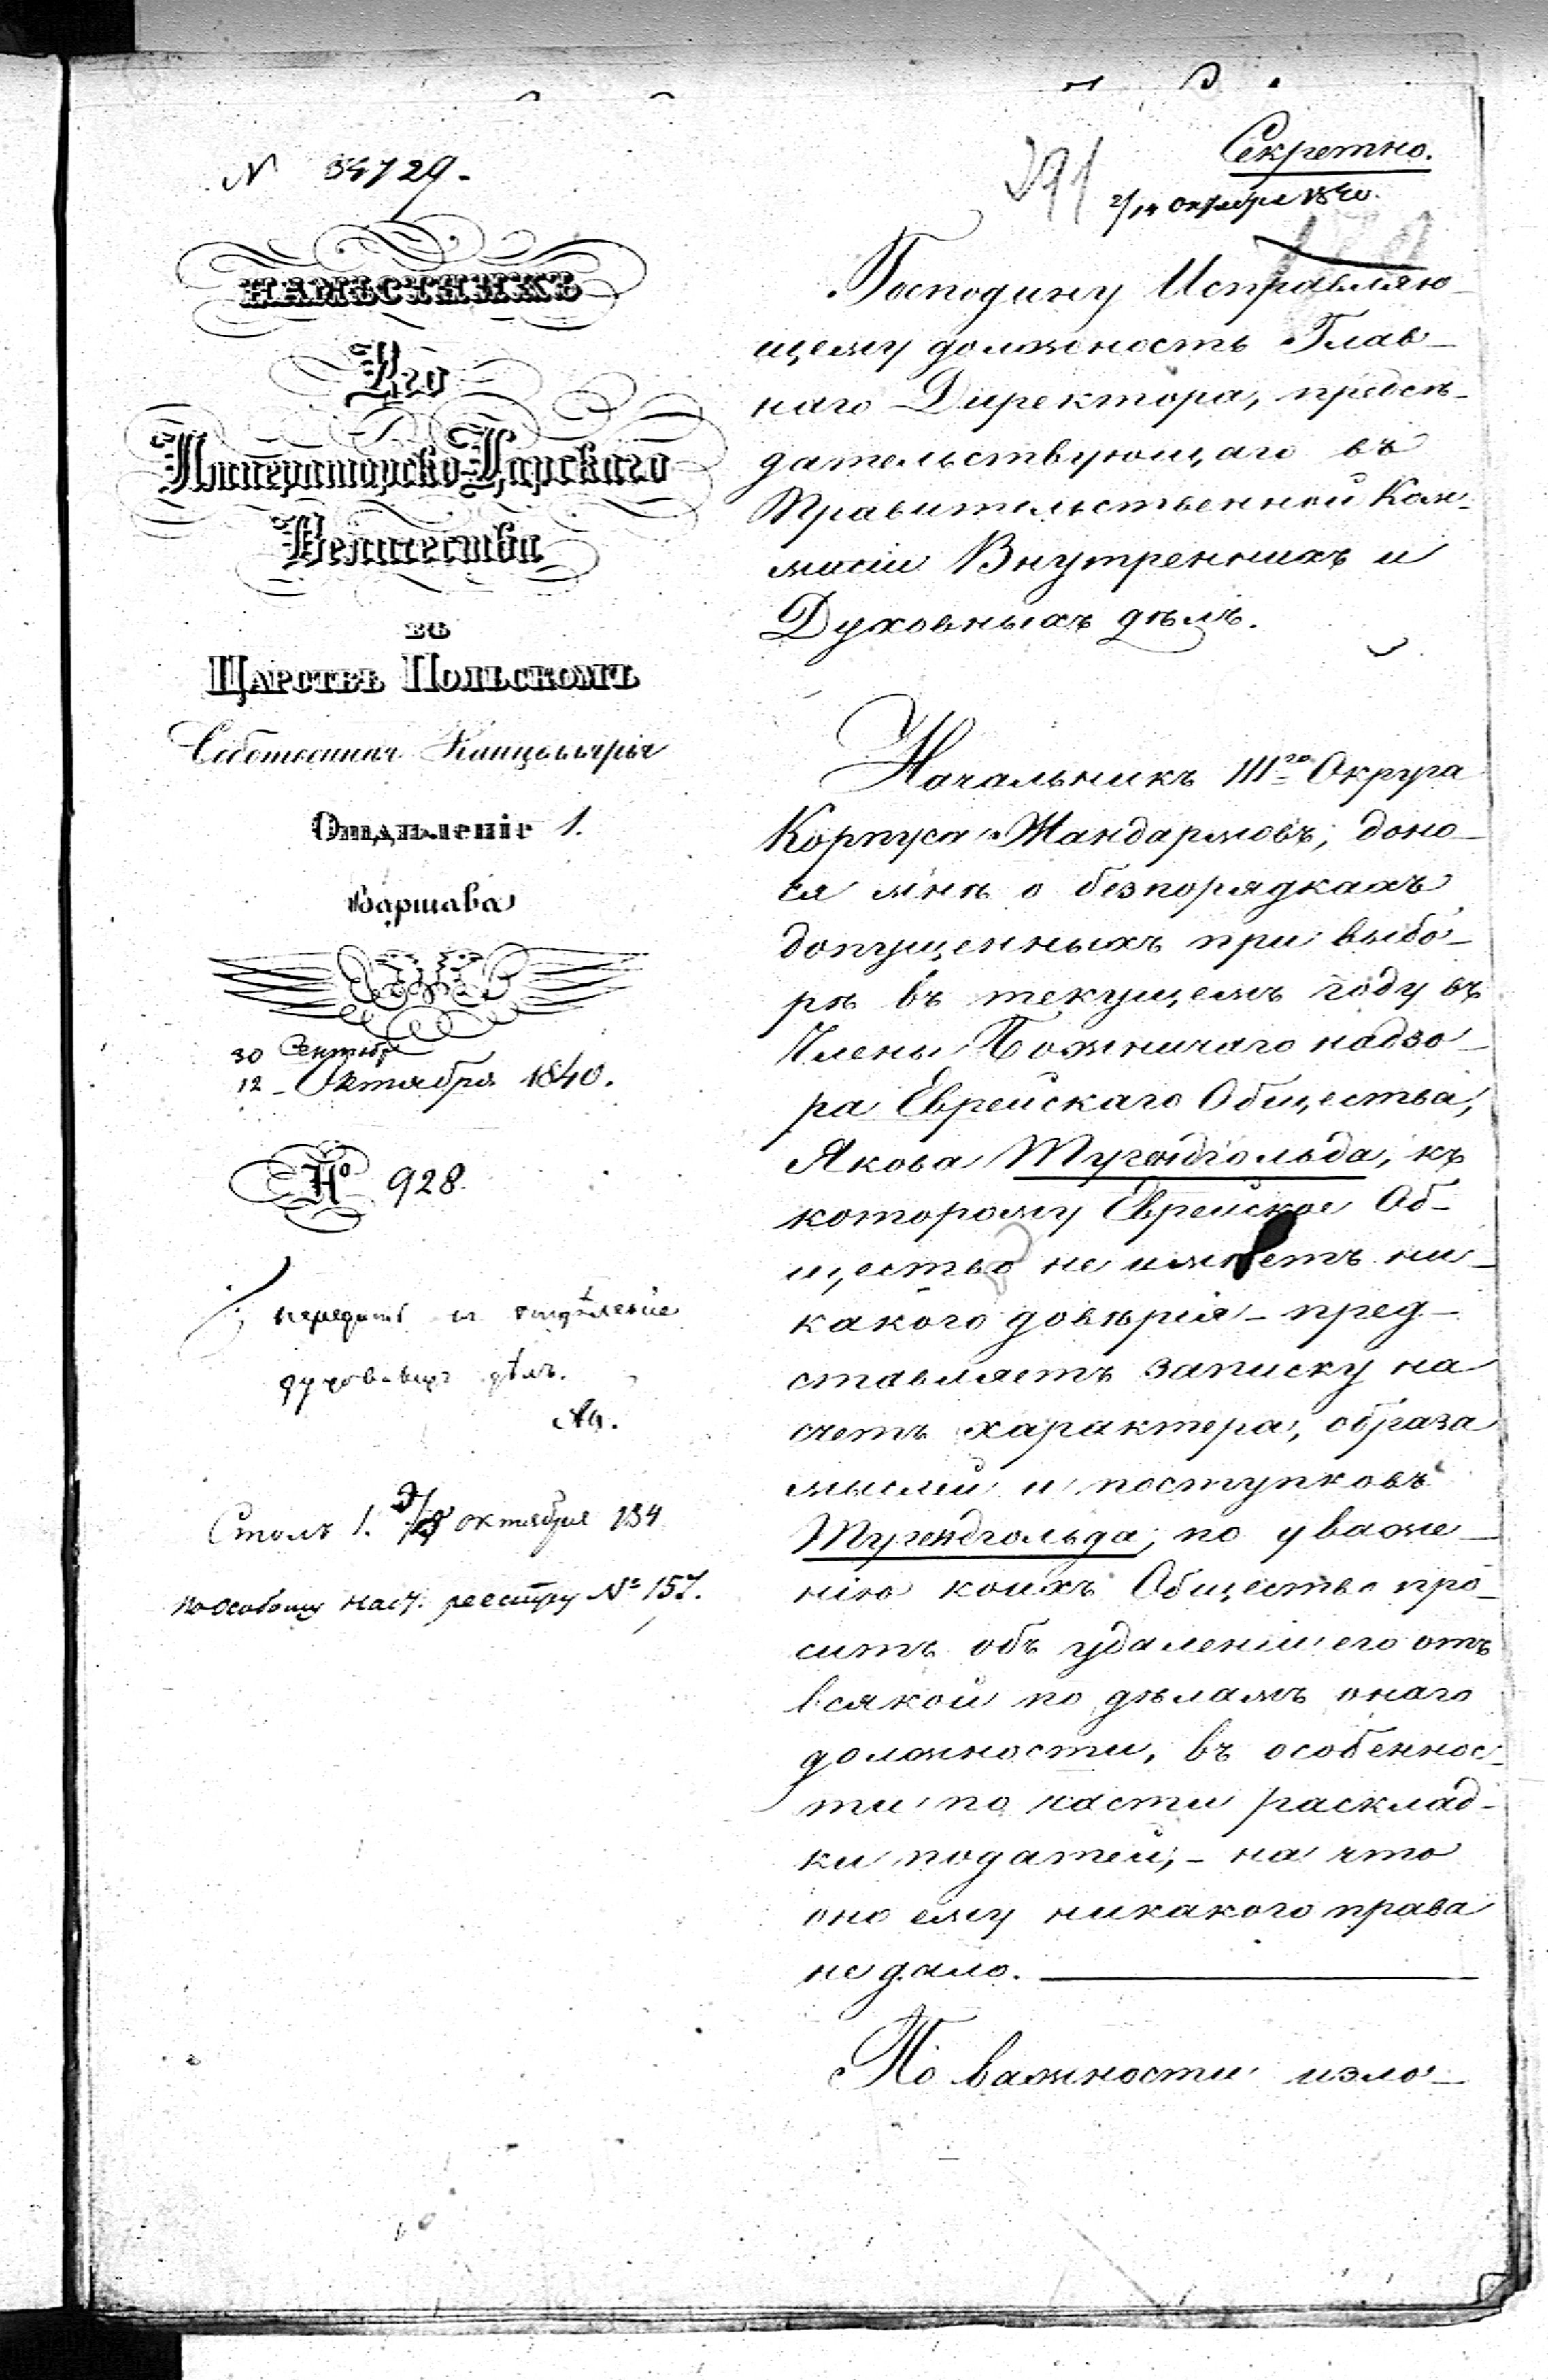 N 34729.
НАМѢСТНИКЪ
Его
Императорско-Царскаго
Величества
въ
Царствѣ Польскомъ
Собственная Канцелярія
Отдѣленіе 1.
Варшава
30 Сентяб
12 - Октября 1840.
Nо 928.
передать въ отдѣленіе
духовныхъ дѣлъ.
Столъ 1. октября 184
по особому наст. реестру № 157.
291
Секретно.
2/14 октября 1840.
Господину Исправляю-
щему должность Глав-
наго Директора, предсѣ-
дательствующаго въ
Правительственной Ком-
мисіи Внутреннихъ и
Духовныхъ дѣлъ.
Начальникъ IIIго Округа
Корпуса Жандармовъ, доно-
ся мнѣ о безпорядкахъ
допущенныхъ при выбо-
рѣ въ текущемъ году въ
Члены Божничаго надзо-
ра Еврейскаго Общества,
Якова Тугендгольда, къ
которому Еврейское Об-
щество не имѣетъ ни-
какого довѣрія - пред-
ставляетъ записку на
счетъ характера, образа
мыслей и поступковъ
Тугендгольда, по уваже-
нію коихъ Общество про-
ситъ объ удаленіи его отъ
всякой по дѣламъ онаго
должности, въ особеннос-
ти по части расклад-
ки податей, - на что
оно ему никакого права
не дало.
По важности изло-